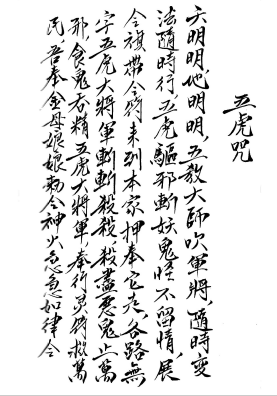 五虎咒
天明明地明明，五教大師吹軍將，隨時變
法隨時行五虎驅邪斬妖鬼怪不留情，展
令旗帶令符来到本家押奉它走，各路無
字五虎大將軍斬斬殺殺，殺盡惡鬼止萬
邪，食鬼吞精五虎大將軍，奉行灵符救萬
民，吾奉金母娘娘勅令神火急急如律令